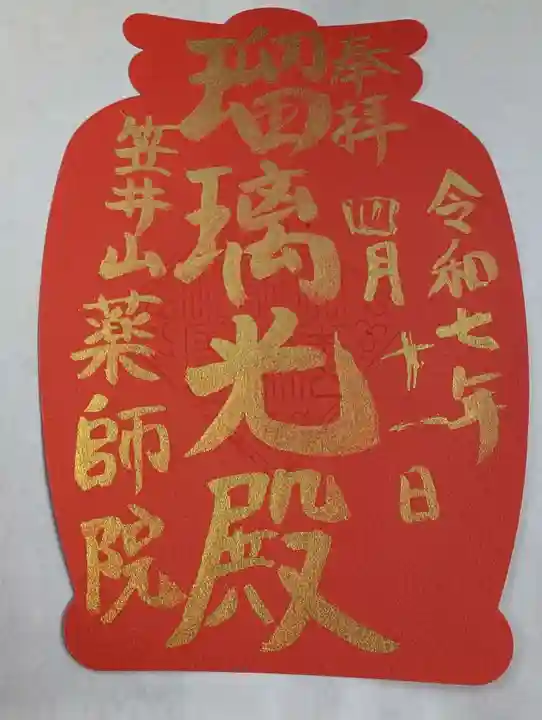 奉拝
令和七年
四月十一日
瑠璃光殿
笠井山薬師院